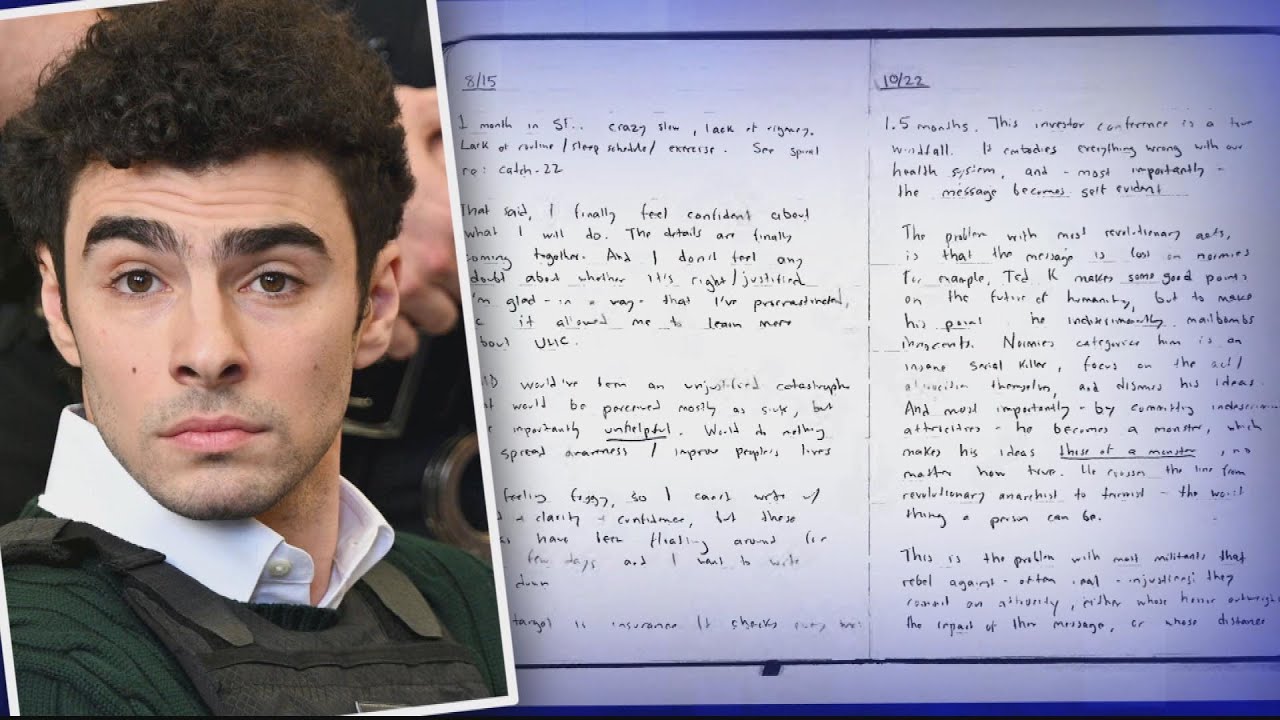 8/15
1 month in SF.. crazy slow, lack of rigmey.
Lack of routine / sleep schedule / exercise. See spiral
re: catch-22
That said, I finally feel confident about
what I will do. The details are finally
coming together. And I don't feel any
doubt about whether it's right / justified
I'm glad - in a way - that I've procrastinated,
it allowed me to learn more
about UHC.
would've been an unjustified catastrophe
would be perceived mostly as sick, but
importantly unhelpful. Would do nothing
spread awareness / improve people's lives
feeling foggy, so I can't write w/
clarity + confidence, but these
have been floating around for
few days and I want to write
down
target is insurance. It checks every
10/22
1.5 months. This investor conference is a true
windfall. It embodies everything wrong with our
health system, and - most importantly -
the message becomes self evident
The problem with most revolutionary acts,
is that the message is lost on normies
For example, Ted K makes some good points
on the future of humanity, but to make
his point he indiscriminantly mailbombs
innocents. Normies categorize him as an
insane serial killer, focus on the act/
atrocities themselves, and dismiss his ideas.
And most importantly - by committing indiscriminate
atrocities - he becomes a monster, which
makes his ideas those of a monster, no
matter how true. He crosses the line from
revolutionary anarchist to terrorist - the worst
thing a person can be.
This is the problem with most militants that
rebel against - often real - injustices: they
commit an atrocity, either whose horror outweighs
the impact of their message, or whose distance